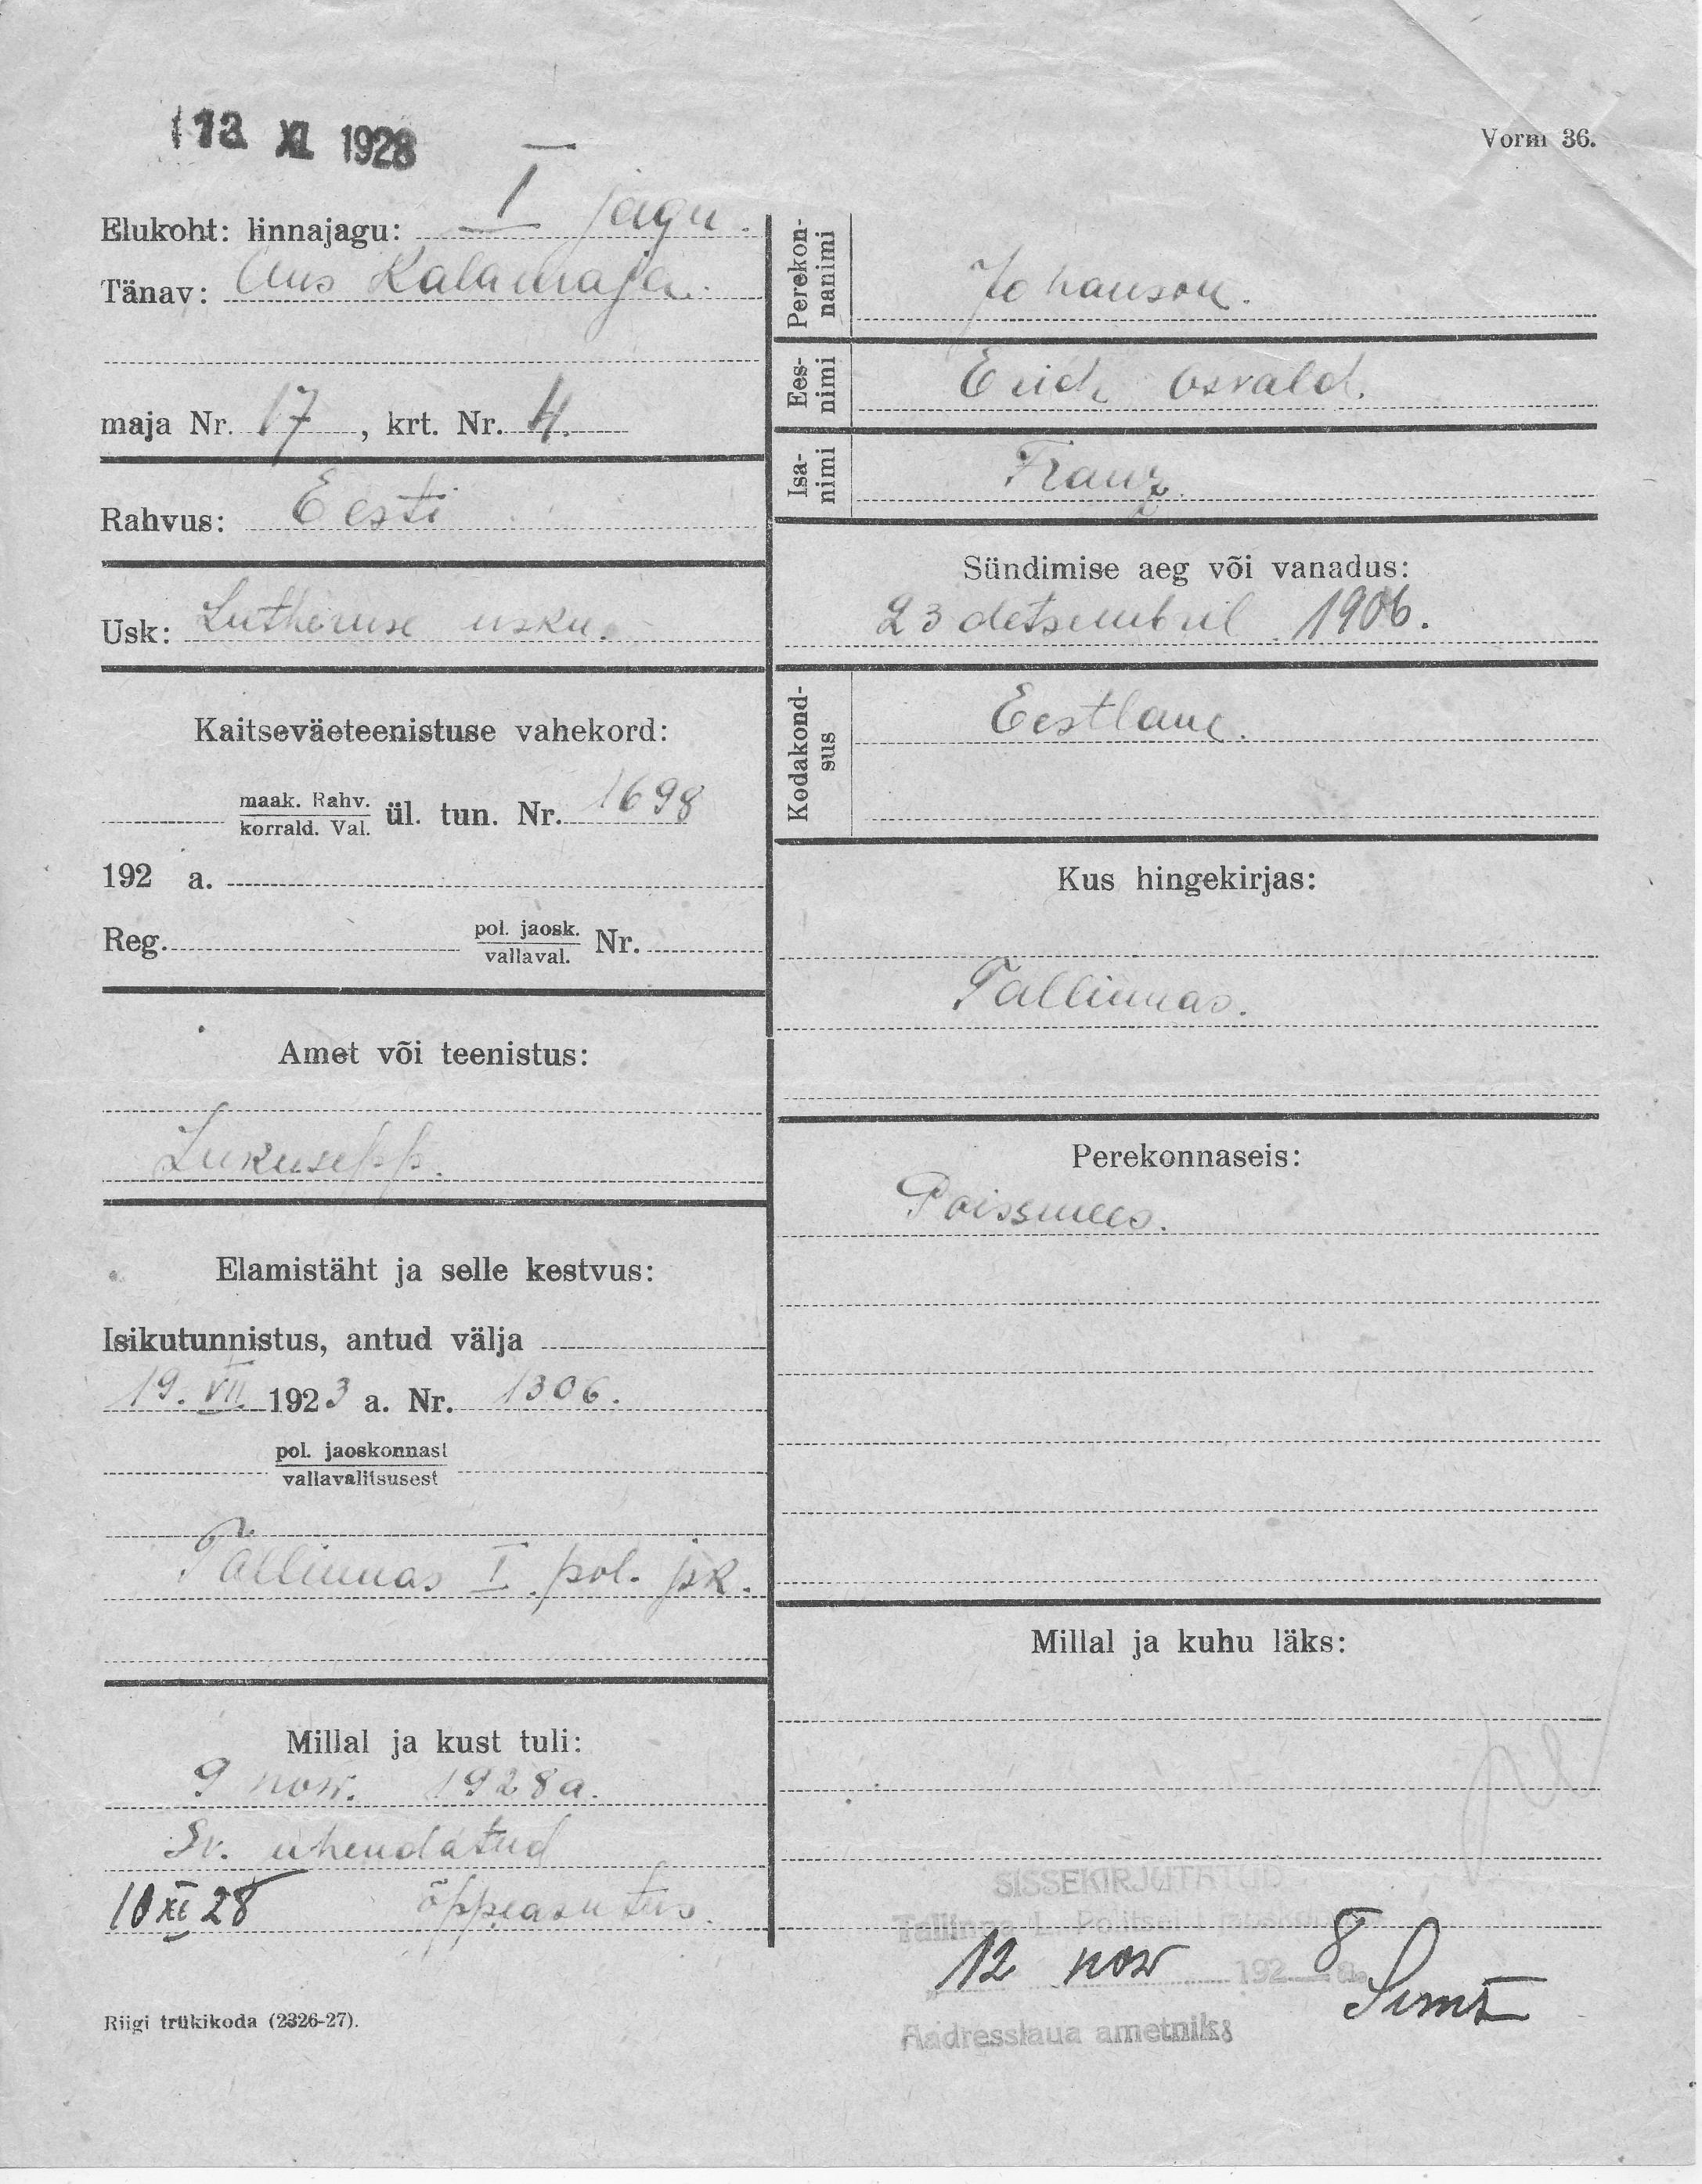 13 XI 1928
Vorm 36.
Elukoht: linnajagu: I jagu.
Tänav: Uus Kalamaja.
maja Nr. 17, krt. Nr. 4.
Rahvus: Eesti
Usk: Lutheruse usku.
Kaitseväeteenistuse vahekord:
maak. Rahv.
korrald. Val.
ül. tun. Nr. 1698
192 a.
Reg. pol. jaosk. Nr.
vallaval.
Amet või teenistus:
Lukusepp.
Elamistäht ja selle kestvus:
Isikutunnistus, antud välja
19. VII. 1923 a. Nr. 1306.
pol. jaoskonnast
vallavalitsusest
Tallinnas I. pol. jsk.
Millal ja kust tuli:
9 now. 1928 a.
Sv. ühendatud
10 XI 28 õppeasutus.
Riigi trükikoda (2326-27).
Perekon-
nanimi
Johanson.
Ees-
nimi
Erich Osvald.
Isa-
nimi
Franz.
Sündimise aeg või vanadus:
23 detsembril 1906.
Kodakond-
sus
Eestlane.
Kus hingekirjas:
Tallinnas.
Perekonnaseis:
Poissmees.
Millal ja kuhu läks:
SISSEKIRJUTATUD
Tallinna L. Politsei jaoskonnas
12 now 1928 a.
Aadresslaua ametnik: